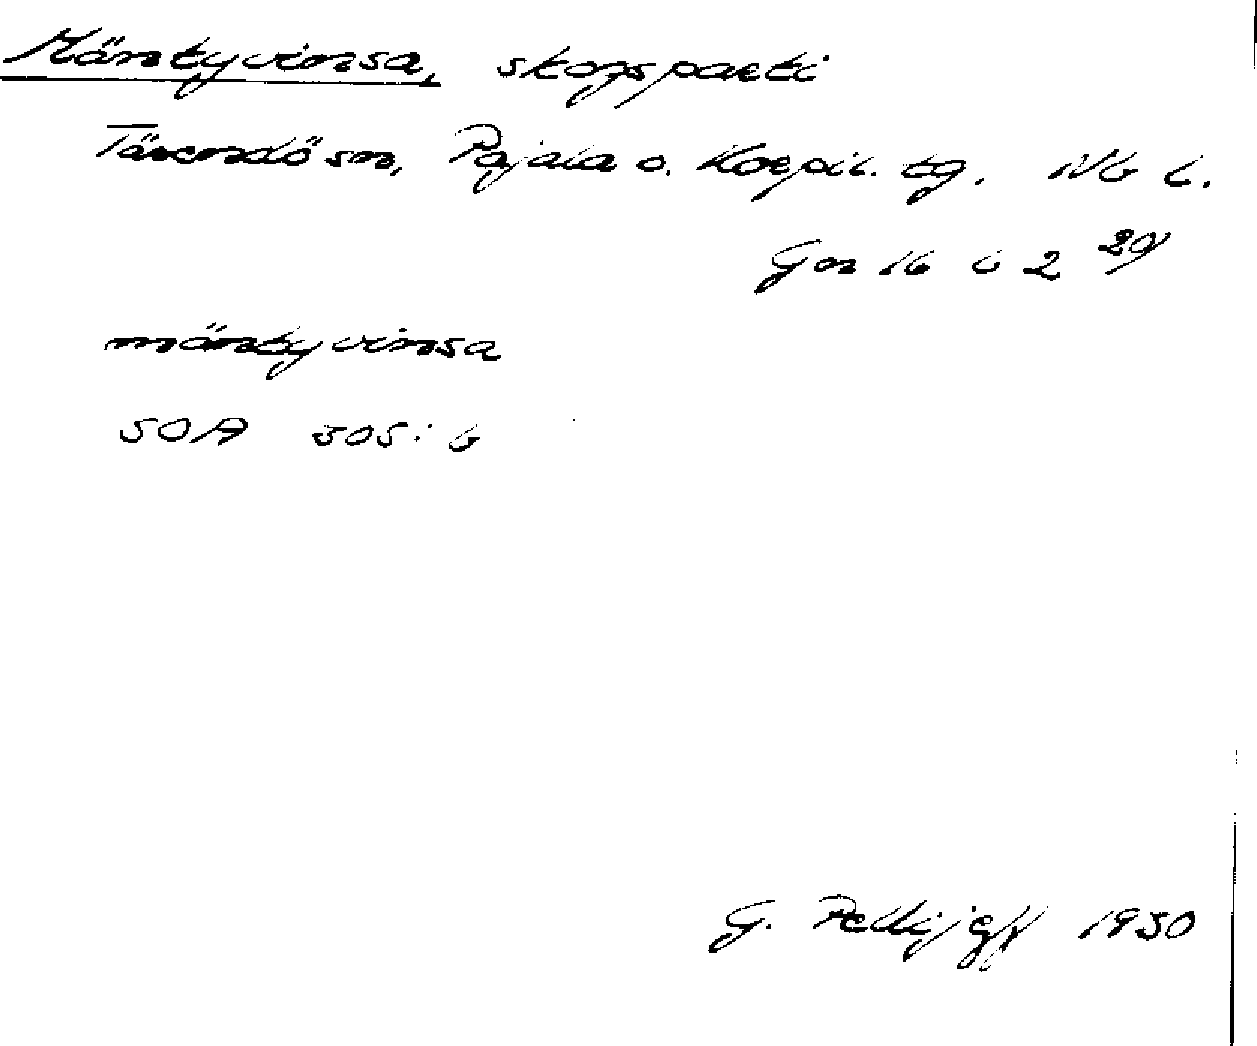 Mäntyvinsa, skogsparti
Tärendö sn, Pajala o. Korpil. tg. Nb l.
Gn 16 b 2 20/
mäntyvinsa
SOA 305: b
G. Pellijeff 1950